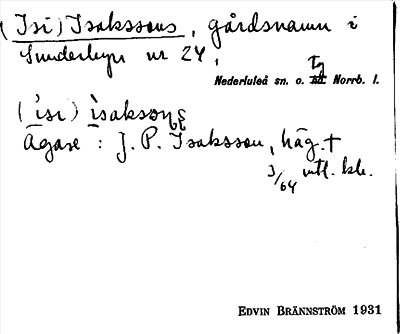 (Isi) Isakssons, gårdsnamn i
Sunderbyn nr 24,
Nederluleå sn. o. tg Norrb. l.
(ˈisɩ) ìsaksɔns
Ägare: J. P. Isaksson, häg. †
3/64 mtl. kr.
EDVIN BRÄNNSTRÖM 1931